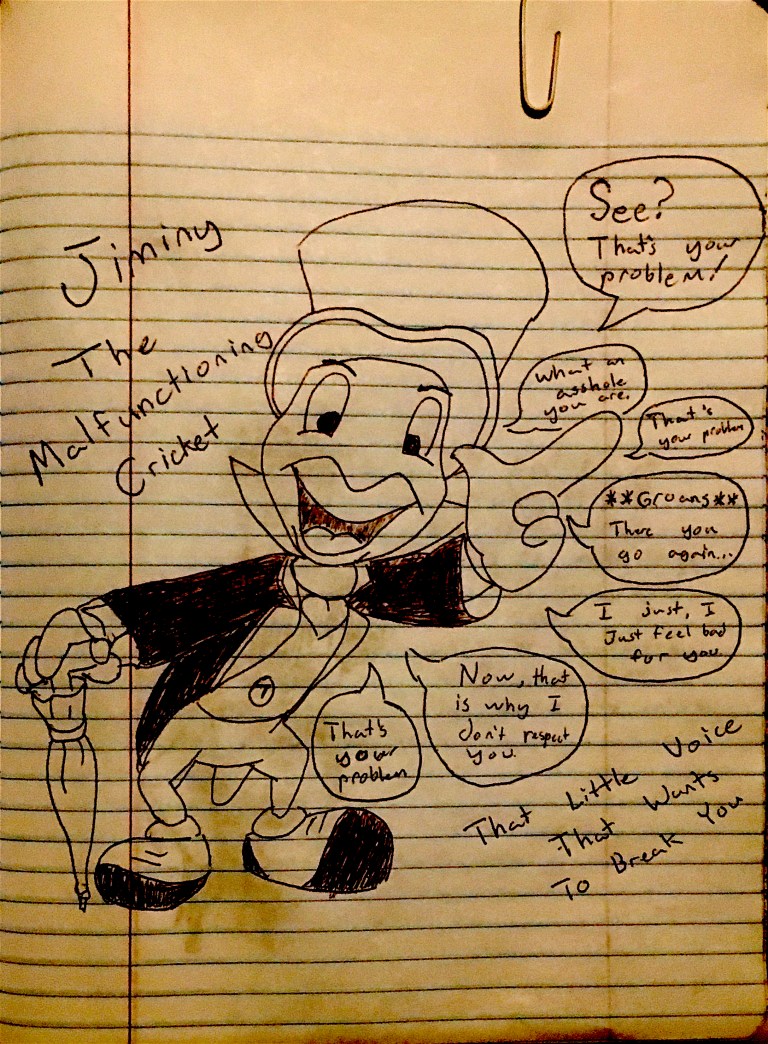 Jiminy
The
Malfunctioning
Cricket
See?
That's your
problem!
What an
asshole
you are.
That's
your problem
**Groans**
There you
go again...
I just, I
Just feel bad
for you.
Now, that
is why I
don't respect
you.
That's
your
problem
That Little Voice
That Wants
To Break You